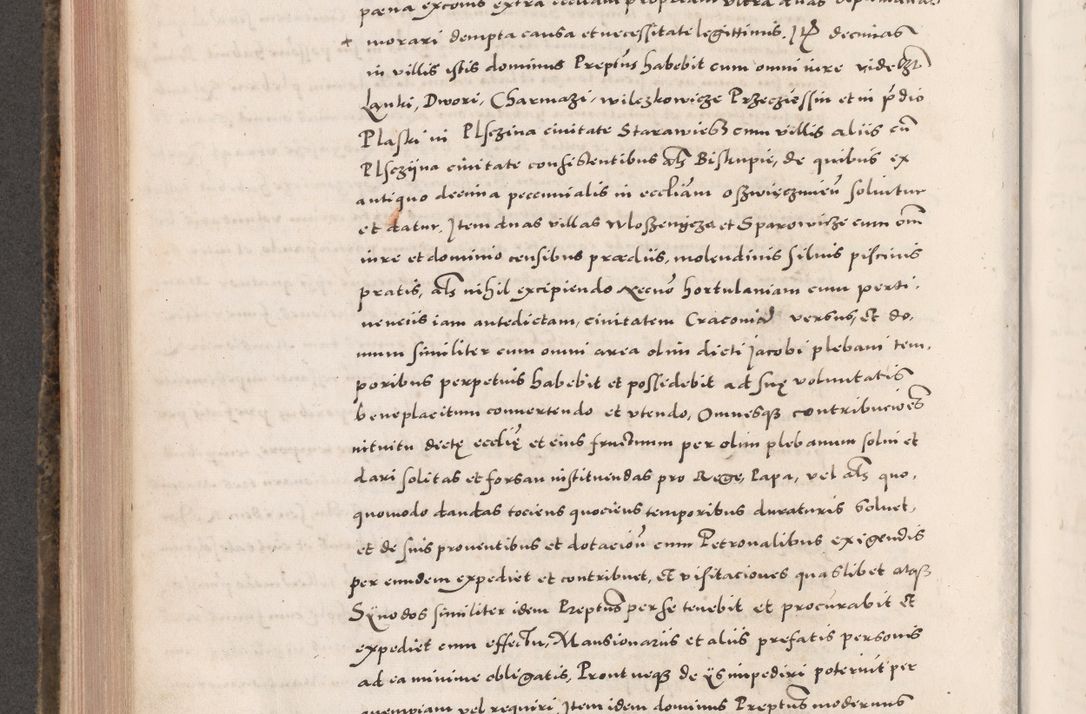 pæna exconis extra eccliam propriam ultra duas
+ morari dempta causa et necessitate legittimis. Itē decimas
in villis istis dominus Preptus habebit cum omni iure videlzt
Lanki, Dwori, Charmazi, wilczkowicze Przecziessin et in pdio
Plaski in Plsczina civitate Starawiesz cum villis aliis cū
Plsczÿna civitate consistentibus als Biskupie, de quibus ex
antiquo decima peccunialis in eccliam Oszwięczimien solvitur
et datur. Item duas villas Wloszenycze et Sparowicze cum omi
iure et dominio censibus prædiis, molendinis silvis piscinis
pratis, als nihil excipiendo necnō hortulaniam cum perti,
nenciis iam antedictam, civitatem Cracoviā versus, et do,
mum similiter cum omni area olim dicti Jacobi plebani tem,
poribus perpetuis habebit et possedebit ad suę voluntatis
beneplacitum convertendo et utendo, Omnesqz contribuciões
intuitu dictę ecclię et eius fructuum per olim plebanum solvi et
dari solitas et forsan instituendas pro Rege, Papa, vel als quo,
quomodo dandas tociens quociens temporibus duraturis solvet,
et de suis proventibus et dotacioū cum Petronalibus exigendis
per eundem expediet et contribuet, et visitaciones quaslibet atqz
Sÿnodos similiter idem Preptus per se tenebit et procurabit et
expediet cum effectu, Mansionariis et aliis prefatis personis
ad ea minime obligatis, Prout neqz de ÿs impediri poterint per
quempiam vel requiri. Item idem dominus Preptus modernus